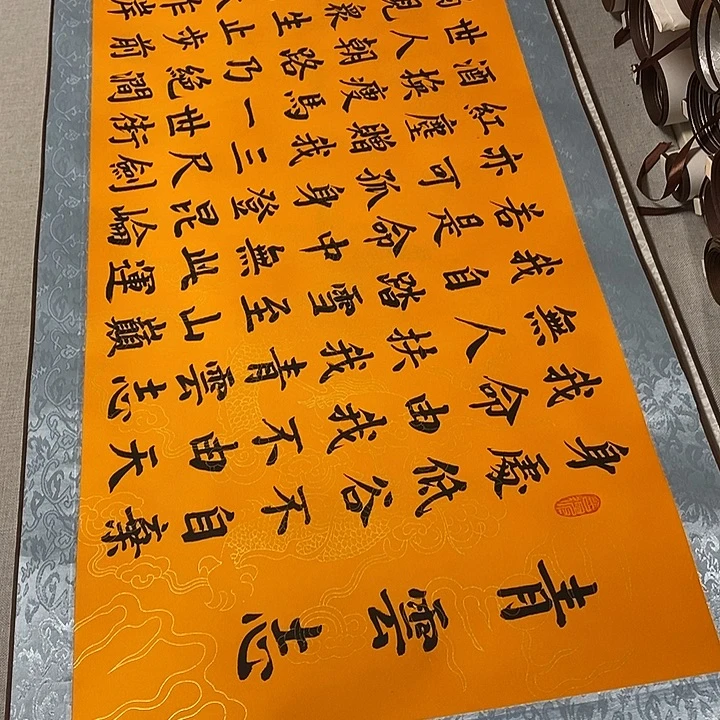 青雲志
身處低谷不自棄
我命由我不由天
無人扶我青雲志
我自踏雪至山巔
若是命中無此運
亦可孤身登昆崙
紅塵贈我三尺劍
酒換瘦馬一世街
世人朝路乃絕澗
眾生止步前
岸